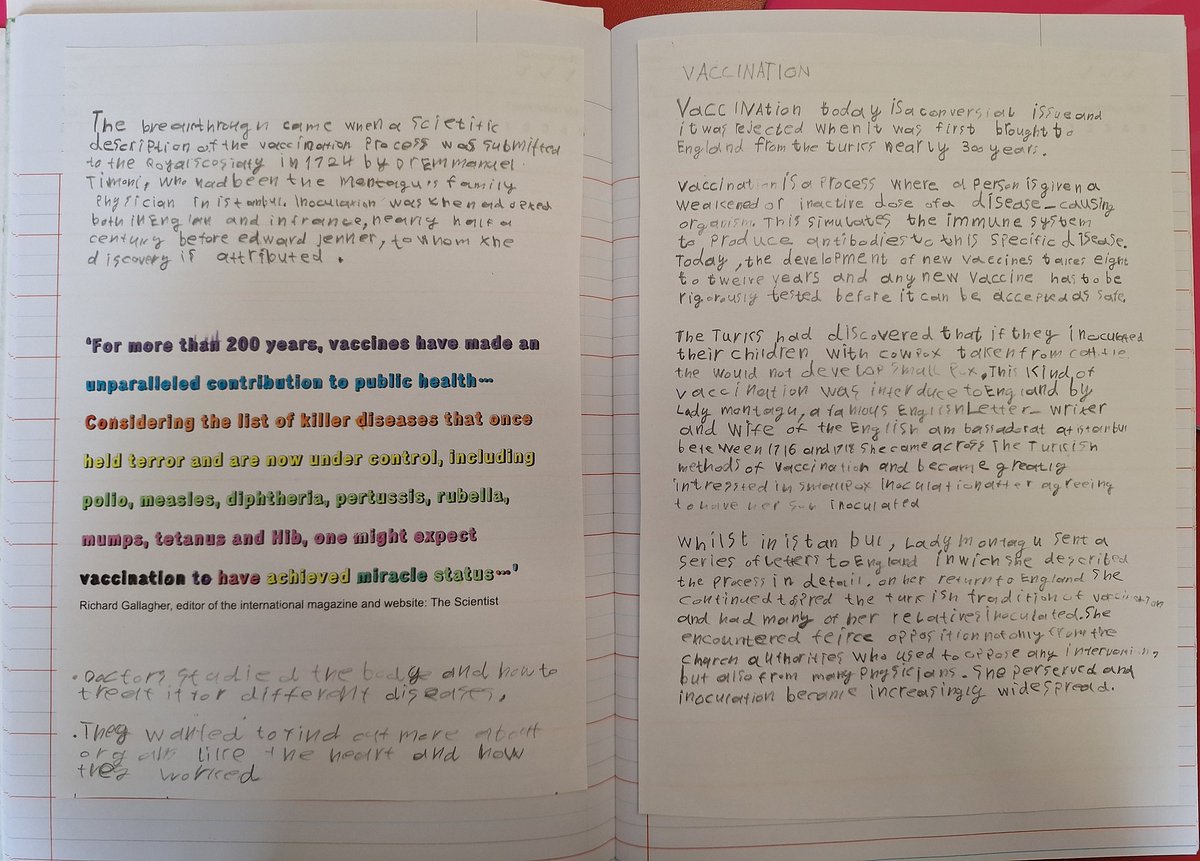 The breakthrough came when a scietitic
description of the vaccination Process was submitted
to the Royalscosiaty in 1724 by Dr EMManuel
Timoni, who had been the Montagu's family
Physician in istambul. Inoculation was then adopted
both in Englan and in france, nearly half a
century before edward jenner, to whom the
discovery is attributed.
‘For more than 200 years, vaccines have made an
unparalleled contribution to public health…
Considering the list of killer diseases that once
held terror and are now under control, including
polio, measles, diphtheria, pertussis, rubella,
mumps, tetanus and Hib, one might expect
vaccination to have achieved miracle status…’
Richard Gallagher, editor of the international magazine and website: The Scientist
• Doctors studied the body and how to
treat it for different diseases.
• They wanted to find out more about
organs like the heart and how
they worked
VACCINATION
VaccINation today is a conversial issue and
it was rejected when it was first brought to
England from the turks nearly 300 years.
Vaccination is a Process where a person is given a
weakened or inactive dose of a disease-causing
organism. This simulates the immune system
to produce antibodies to this specific disease.
Today, the development of new vaccines takes eight
to twelve years and any new vaccine has to be
rigorously tested before it can be accepted as safe.
The Turks had discovered that if they inoculated
their children with cowpox taken from cattle
the would not develop small pox. This kind of
vaccination was interduce to England by
Lady montagu, a famous English Letter-writer
and wife of the English ambassador at istanbul
between 1716 and 1718 she came across The Turkish
methods of vaccination and became greatly
intrested in smallpox inoculation after agreeing
to have her sun inoculated
whilst in istanbul, Lady Montagu sent a
series of letters to England in wich she described
the process in detail. on her return to England she
continued to spred the turkish tradition of vaccination
and had many of her relatives inoculated. She
encountered feirce opposition not only from the
church authorities who used to oppose any intervention,
but also from many physicians. She perserved and
inoculation became increasingly widespread.